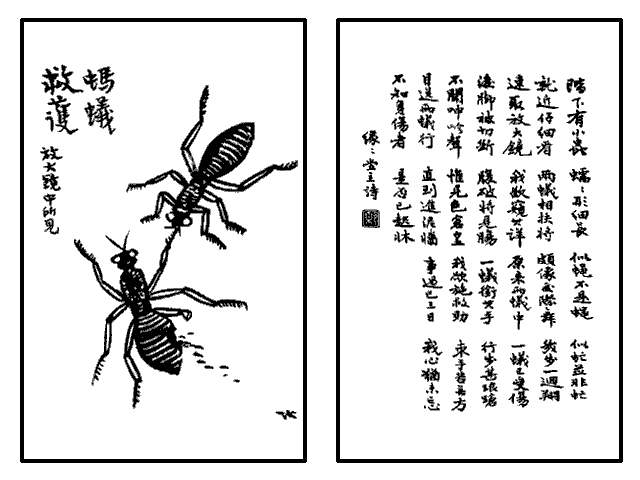 螞蟻
救護
放大鏡中所見
TK
階下有小虫 蠕々形細長 似蠅不是蠅 似虻並非虻
就近仔細看 兩蟻相扶持 頗像交際舞
速取放大鏡 我欲窺其詳 原來兩蟻中 一蟻已受傷
後脚被切斷 腹破將見腸 一蟻銜其手 行步甚踉蹌
不聞呻吟聲 惟見色倉皇 我欲施救助 束手苦無方
目送兩蟻行 直到進泥牆 事過已三日 我心猶未忘
不知負傷者 是否已起牀
緣々堂主詩